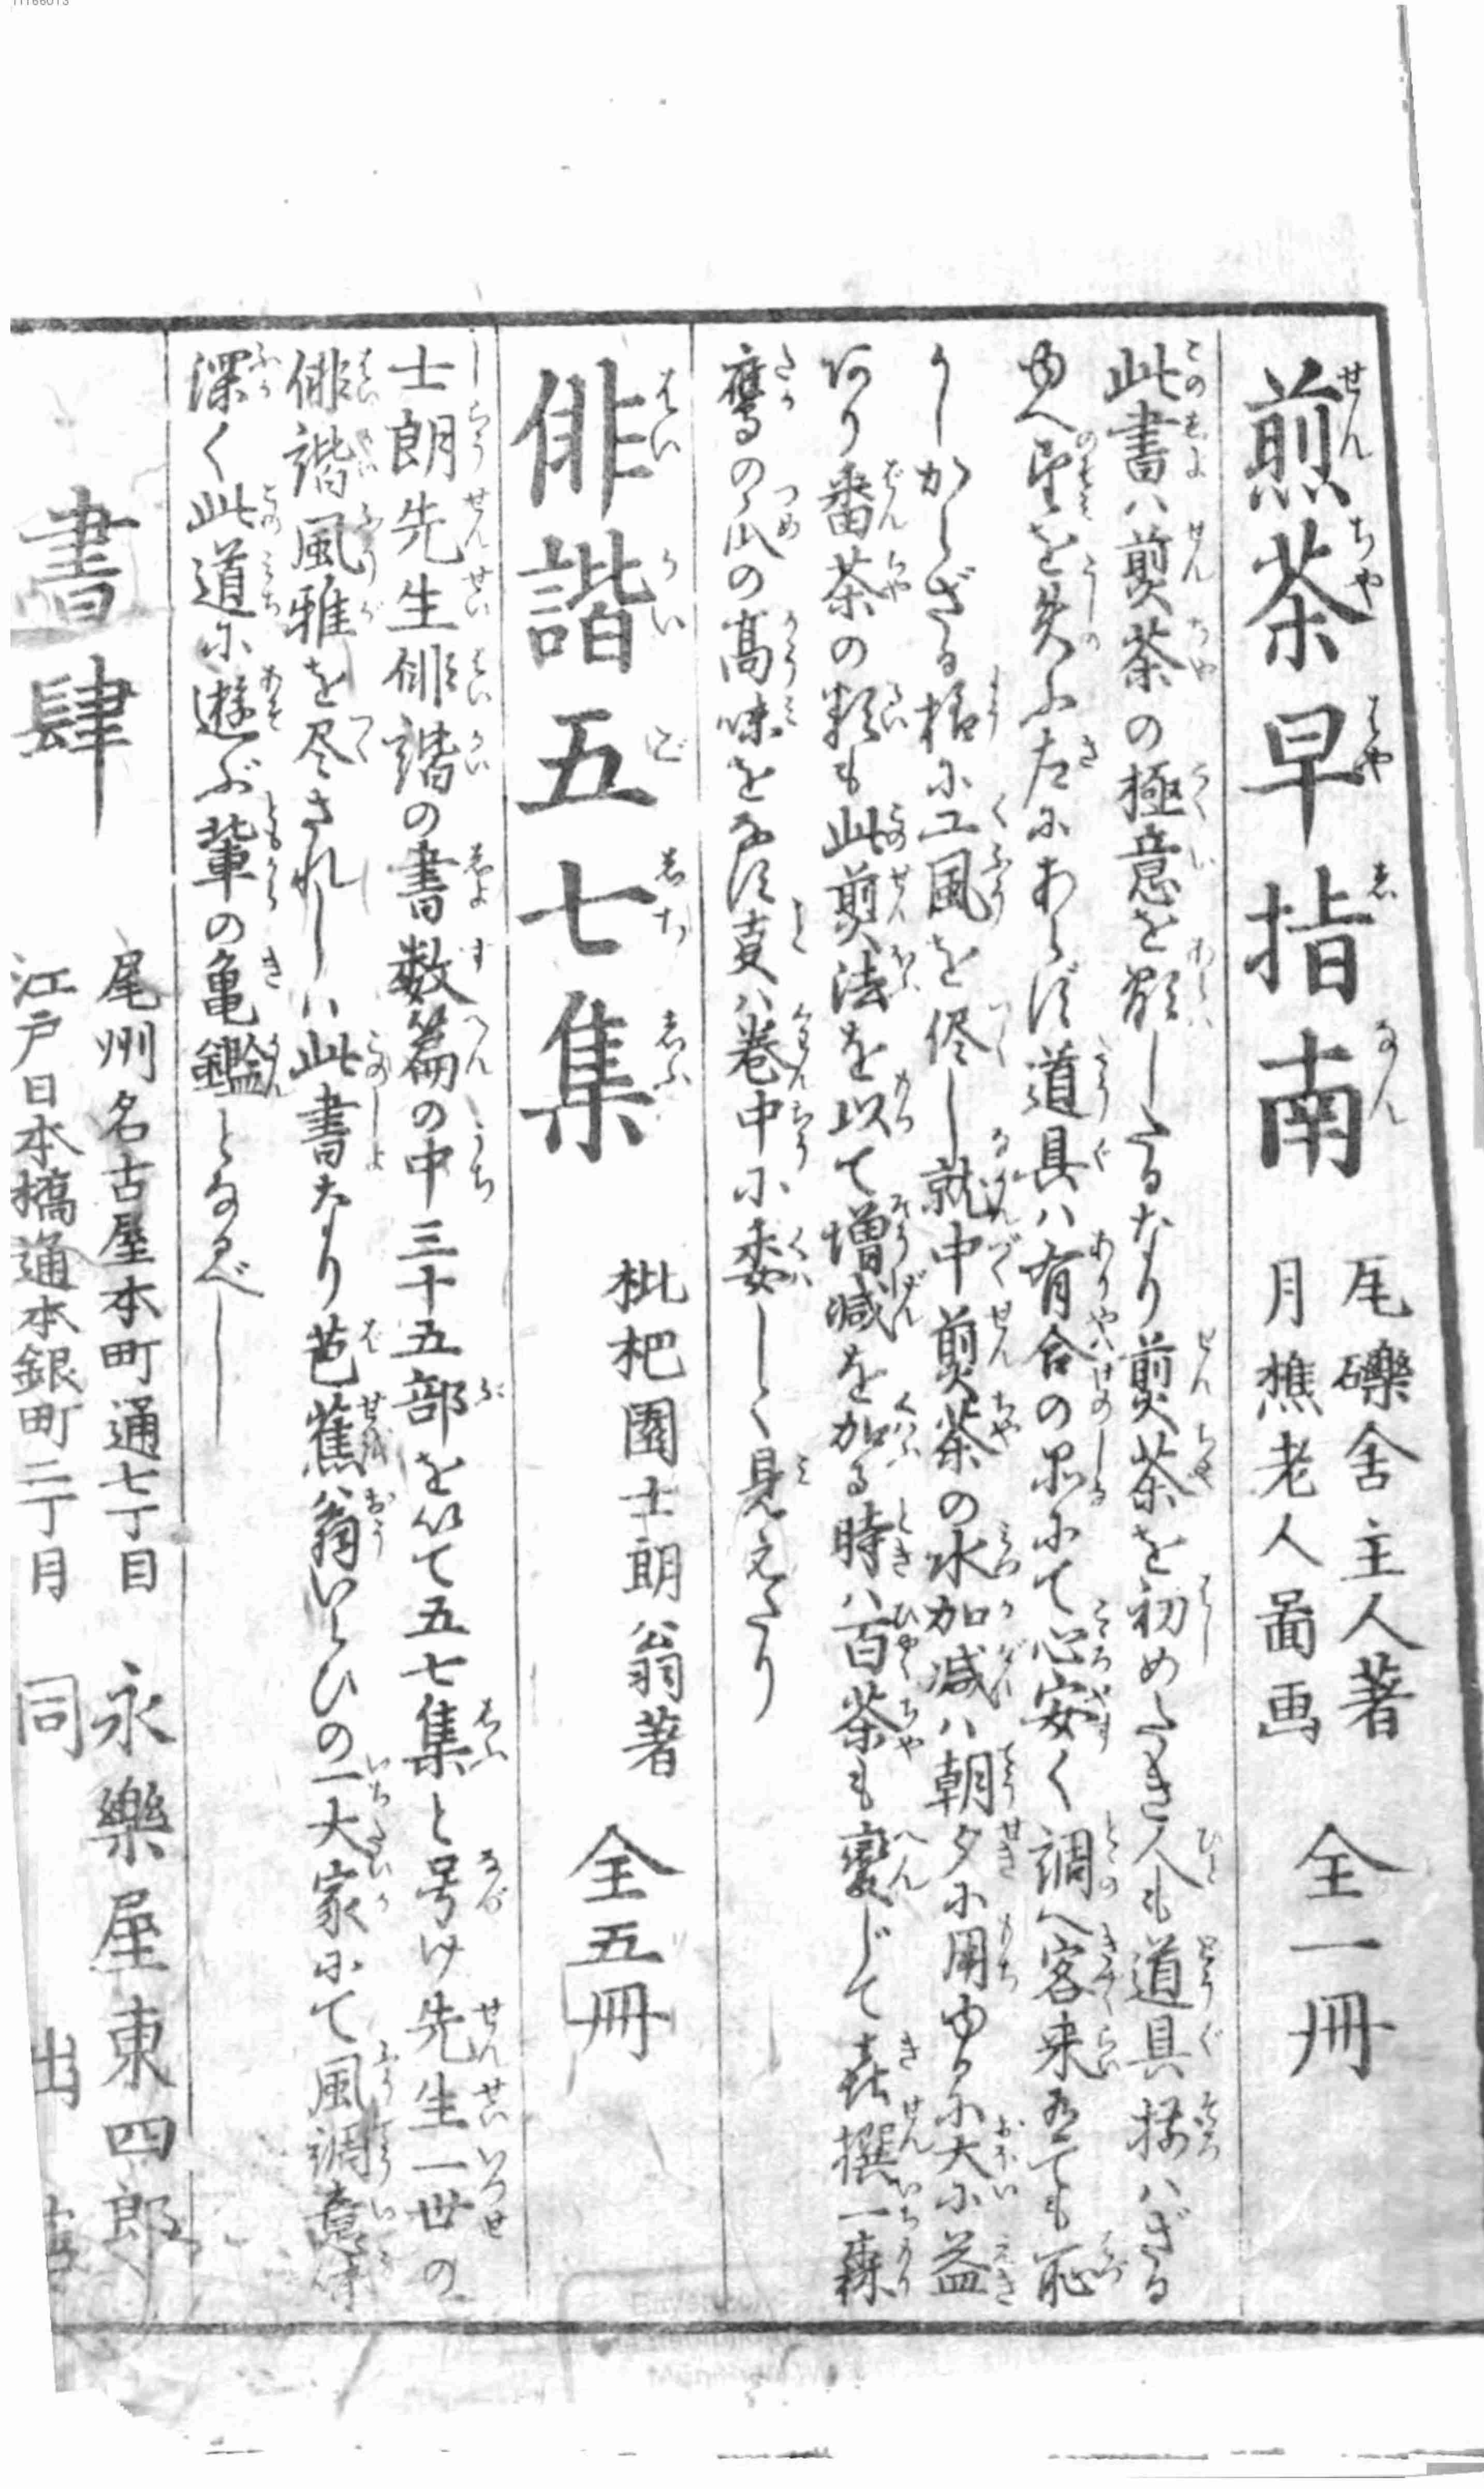 11166013
煎茶早指南
尾礫舎主人著
月樵老人啚画
全一冊
此書ハ煎茶の極意を顕したるなり煎茶を初めたき人も道具揃ハざる
ゆへ望を失ふ左にあらず道具ハ有合の品にて心安く調へ客来有ても恥
うしからざる様に工風を尽し就中煎茶の水加減ハ朝夕に用ゆるに大に益
あり番茶の類も此煎法を以て増減を加る時ハ百茶も変じて喜撰一森
鷹の爪の高味をなす事ハ巻中に委しく見えたり
俳諧五七集
枇杷園士朗翁著
全五冊
士朗先生俳諧の書数篇の中三十五部を以て五七集と号け先生一世の
俳諧風雅を尽されしハ此書なり芭蕉翁いらひの一大家にて風調意味
深く此道に遊ぶ輩の亀鑑となるべし
書肆
尾州名古屋本町通七丁目
永樂屋東四郎
江戸日本橋通本銀町二丁目
同
出店